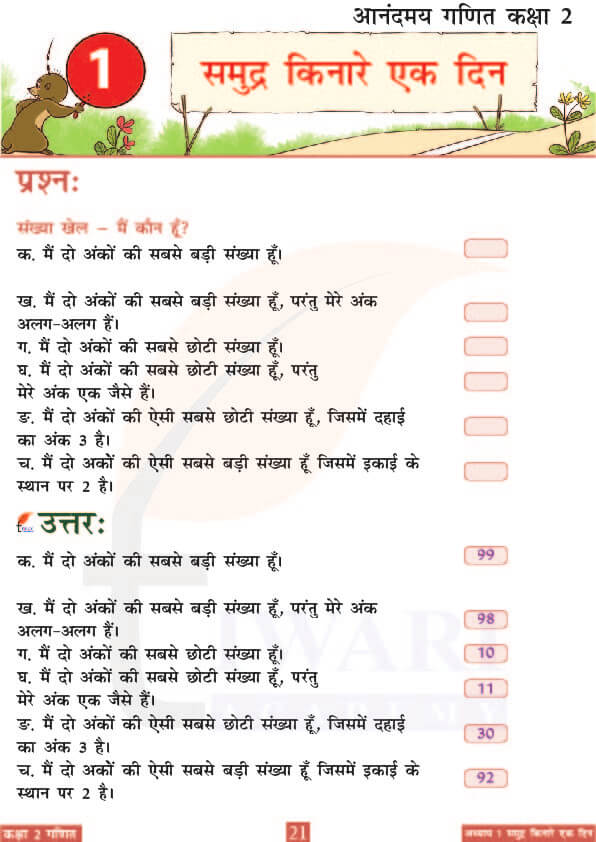 आनंदमय गणित कक्षा 2
1
समुद्र किनारे एक दिन
प्रश्न:
संख्या खेल – मैं कौन हूँ?
क. मैं दो अंकों की सबसे बड़ी संख्या हूँ।
ख. मैं दो अंकों की सबसे बड़ी संख्या हूँ, परंतु मेरे अंक
अलग-अलग हैं।
ग. मैं दो अंकों की सबसे छोटी संख्या हूँ।
घ. मैं दो अंकों की सबसे छोटी संख्या हूँ, परंतु
मेरे अंक एक जैसे हैं।
ङ. मैं दो अंकों की ऐसी सबसे छोटी संख्या हूँ, जिसमें दहाई
का अंक 3 है।
च. मैं दो अकों की ऐसी सबसे बड़ी संख्या हूँ जिसमें इकाई के
स्थान पर 2 है।
उत्तर:
क. मैं दो अंकों की सबसे बड़ी संख्या हूँ। 99
ख. मैं दो अंकों की सबसे बड़ी संख्या हूँ, परंतु मेरे अंक
अलग-अलग हैं। 98
ग. मैं दो अंकों की सबसे छोटी संख्या हूँ। 10
घ. मैं दो अंकों की सबसे छोटी संख्या हूँ, परंतु
मेरे अंक एक जैसे हैं। 11
ङ. मैं दो अंकों की ऐसी सबसे छोटी संख्या हूँ, जिसमें दहाई
का अंक 3 है। 30
च. मैं दो अकों की ऐसी सबसे बड़ी संख्या हूँ जिसमें इकाई के
स्थान पर 2 है। 92
TIWARI
ACADEMY
कक्षा 2 गणित
21
अध्याय 1 समुद्र किनारे एक दिन